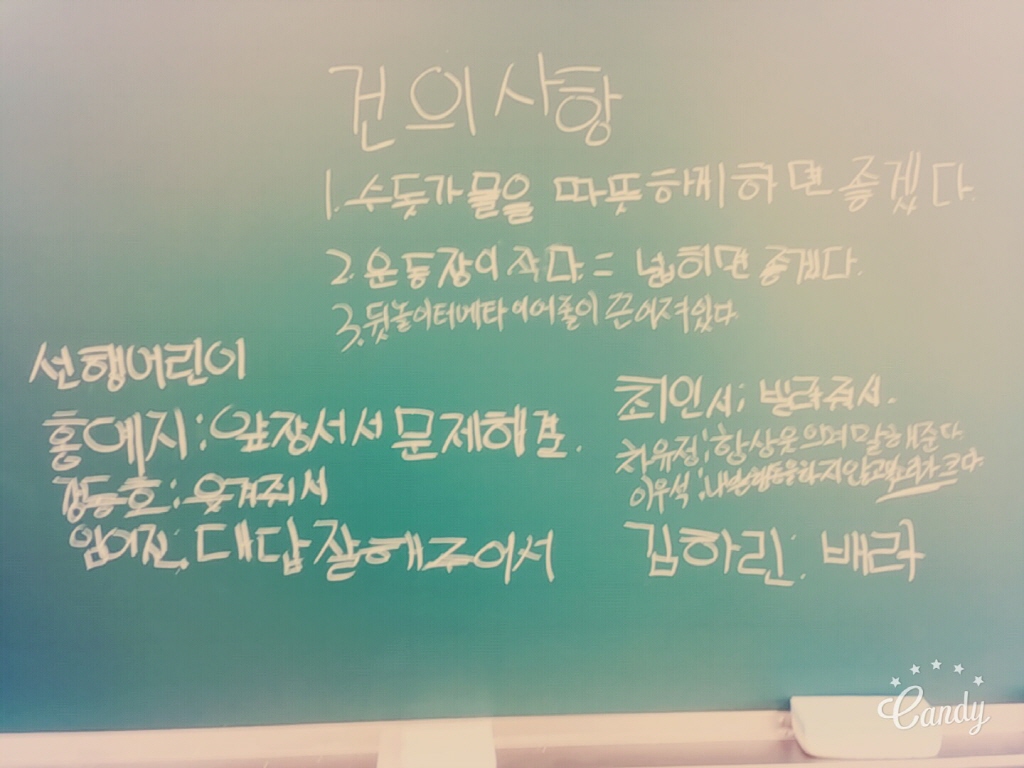 건의사항
1. 수돗가 물을 따뜻하게 하면 좋겠다.
2. 운동장이 작다 = 넙히면 좋게다.
3. 뒷놀이터에 타이어줄이 끈어져있다.
선행어린이
홍예지: 앞장서서 문제해결.
동호: 웃겨줘서
대답 잘해주어서
최인서; 빌려줘서.
차유정; 항상 웃으며 말해준다.
이우석;
김하린: 배려
Candy